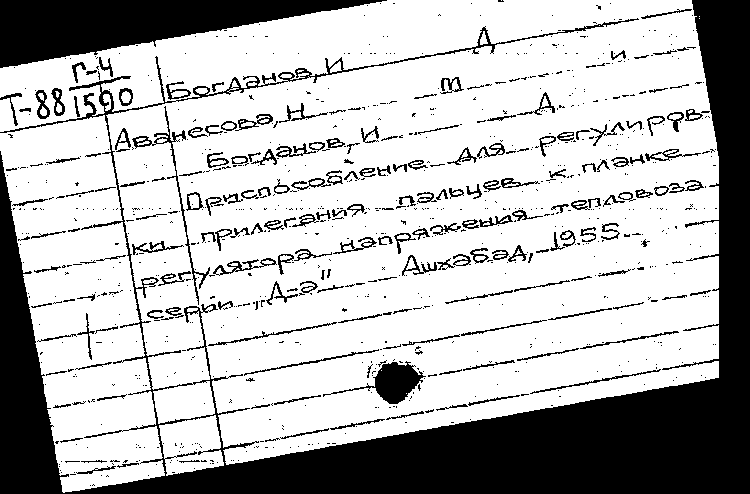 Г-4
Т-88 1590
Богданов, И Д
Аванесова, Н т и
Богданов, И Д
Приспособление для регулиров
ки прилегания пальцев к планке
регулятора напряжения тепловоза
серии „Д-а" Ашхабад, 1955.